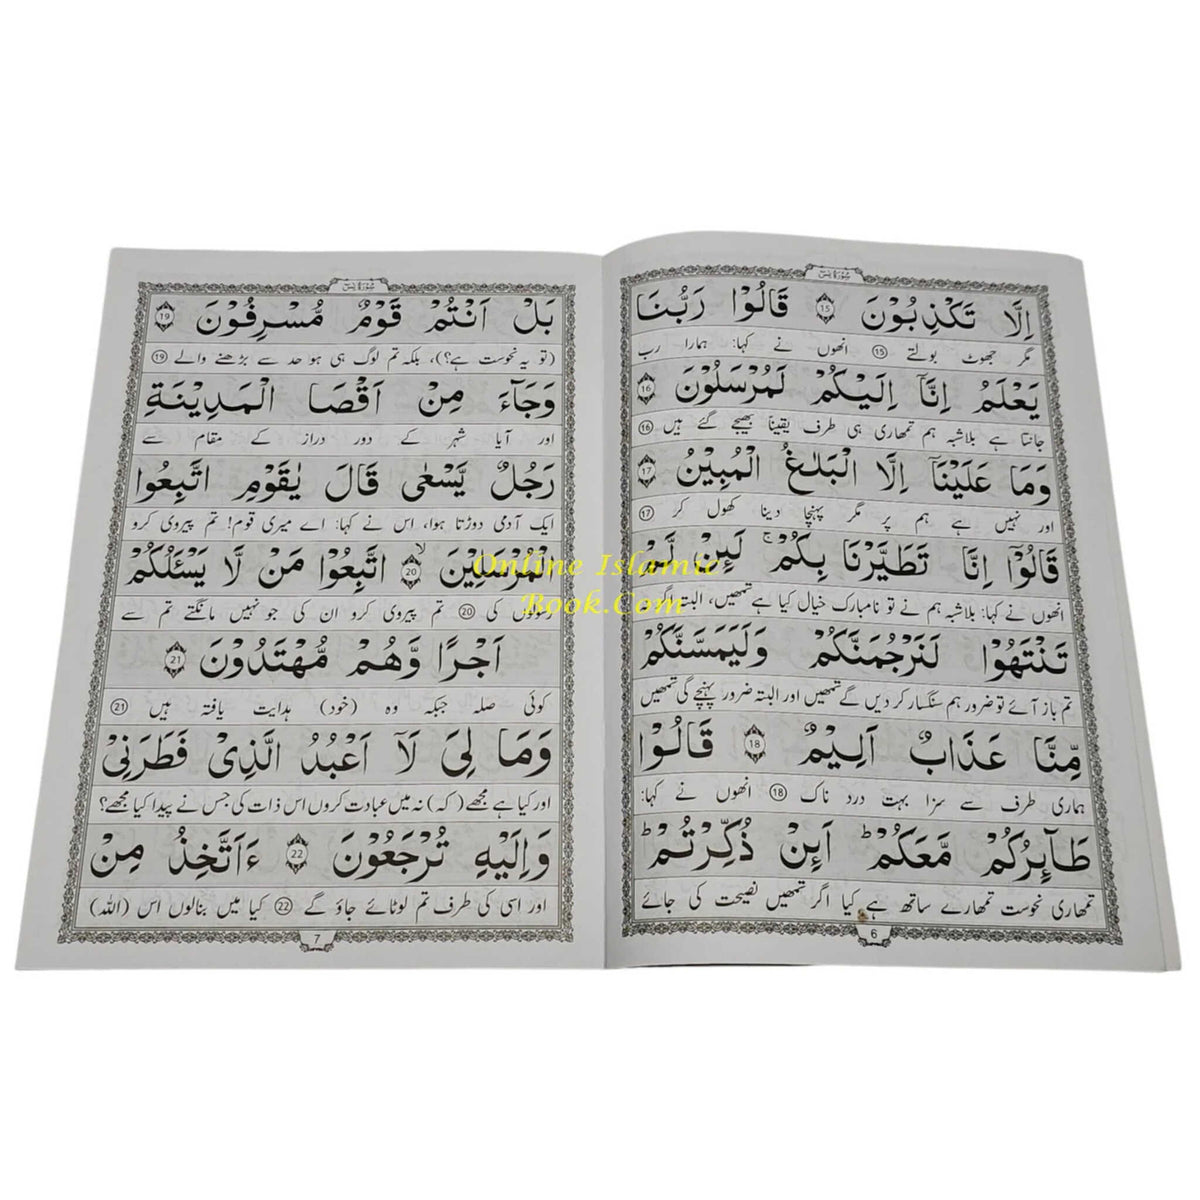 سُوْرَةُ يٰسٓ
اِلَّا تَكْذِبُوْنَ 15 قَالُوْا رَبُّنَا
مگر جھوٹ بولتے 15 انھوں نے کہا: ہمارا رب
يَعْلَمُ اِنَّاۤ اِلَيْكُمْ لَمُرْسَلُوْنَ 16
جانتا ہے بلاشبہ ہم تمھاری ہی طرف یقیناً بھیجے گئے ہیں 16
وَمَا عَلَيْنَاۤ اِلَّا الْبَلٰغُ الْمُبِيْنُ 17
اور نہیں ہے ہم پر مگر پہنچا دینا کھول کر 17
قَالُوْۤا اِنَّا تَطَيَّرْنَا بِكُمْ ۚ لَىِٕنْ لَّمْ
انھوں نے کہا: بلاشبہ ہم نے تو نامبارک خیال کیا ہے تمھیں، البتہ اگر
تَنْتَهُوْا لَنَرْجُمَنَّكُمْ وَلَيَمَسَّنَّكُمْ
تم باز آئے تو ضرور ہم سنگسار کر دیں گے تمھیں اور البتہ ضرور پہنچے گی تمھیں
مِّنَّا عَذَابٌ اَلِيْمٌ 18 قَالُوْا
ہماری طرف سے سزا بہت درد ناک 18 انھوں نے کہا:
طَآىِٕرُكُمْ مَّعَكُمْ ؕ اَىِٕنْ ذُكِّرْتُمْ ؕ
تمھاری نحوست تمھارے ساتھ ہے کیا اگر تمھیں نصیحت کی جائے
6
سُوْرَةُ يٰسٓ
بَلْ اَنْتُمْ قَوْمٌ مُّسْرِفُوْنَ 19
(تو یہ نحوست ہے؟)، بلکہ تم لوگ ہی ہو حد سے بڑھنے والے 19
وَجَآءَ مِنْ اَقْصَا الْمَدِيْنَةِ
اور آیا شہر کے دور دراز کے مقام سے
رَجُلٌ يَّسْعٰى قَالَ يٰقَوْمِ اتَّبِعُوا
ایک آدمی دوڑتا ہوا، اس نے کہا: اے میری قوم! تم پیروی کرو
الْمُرْسَلِيْنَ 20 ۙ اتَّبِعُوْا مَنْ لَّا يَسْـَٔلُكُمْ
رسولوں کی 20 تم پیروی کرو ان کی جو نہیں مانگتے تم سے
اَجْرًا وَّهُمْ مُّهْتَدُوْنَ 21
کوئی صلہ جبکہ وہ (خود) ہدایت یافتہ ہیں 21
وَمَا لِىَ لَاۤ اَعْبُدُ الَّذِىْ فَطَرَنِىْ
اور کیا ہے مجھے (کہ) نہ میں عبادت کروں اس ذات کی جس نے پیدا کیا مجھے؟
وَاِلَيْهِ تُرْجَعُوْنَ 22 ءَاَتَّخِذُ مِنْ
اور اسی کی طرف تم لوٹائے جاؤ گے 22 کیا میں بنالوں اس (اللہ)
7
Online Islamic
Book.Com